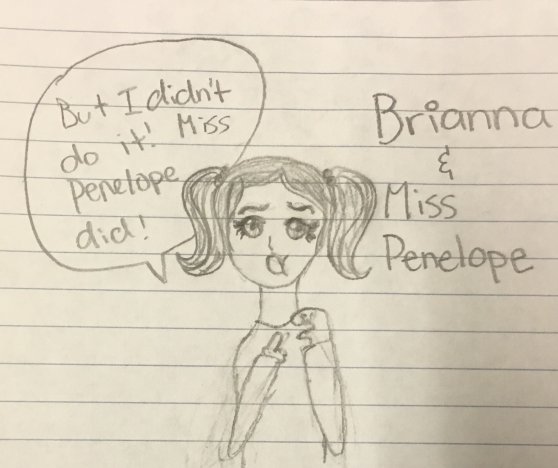 But I didn't
do it! Miss
Penelope
did!
Brianna
&
Miss
Penelope